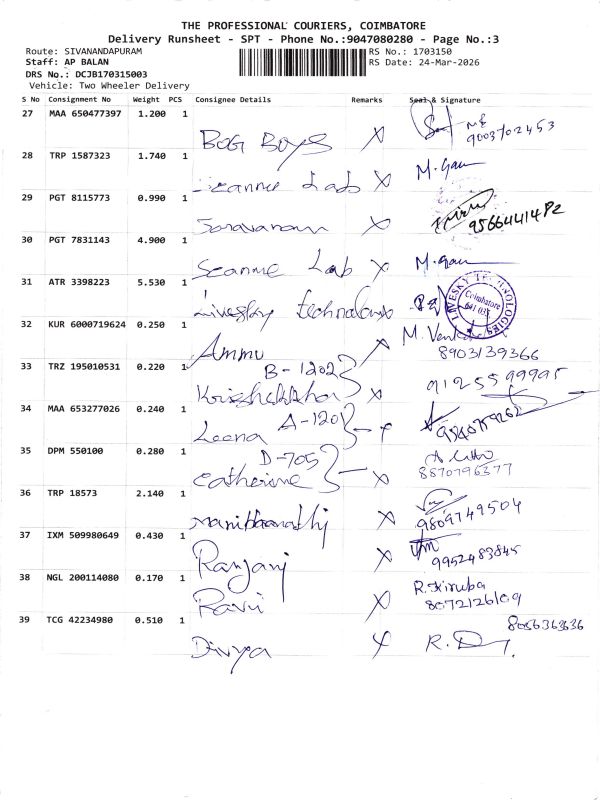 THE PROFESSIONAL COURIERS, COIMBATORE
Delivery Runsheet - SPT - Phone No.:9047080280 - Page No.:3
Route: SIVANANDAPURAM RS No.: 1703150
Staff: AP BALAN RS Date: 24-Mar-2026
DRS No.: DCJB170315003
Vehicle: Two Wheeler Delivery
S No Consignment No Weight PCS Consignee Details Remarks Seal & Signature
27 MAA 650477397 1.200 1
BOG Boys X 9003702453
28 TRP 1587323 1.740 1
Seanme Lab X M. Gau
29 PGT 8115773 0.990 1
Saravanan X
30 PGT 7831143 4.900 1
Seanme Lab X M. Gau
31 ATR 3398223 5.530 1
Livesky Technologies LIVESKY TECHNOLOGIES Coimbatore
32 KUR 6000719624 0.250 1
Ammu X M. 8903139366
33 TRZ 195010531 0.220 1
B-1202 X 9125599995
34 MAA 653277026 0.240 1
Leena A-120 X
35 DPM 550100 0.280 1
Catherine D-705 X 8870796377
36 TRP 18573 2.140 1
X 9809749504
37 IXM 509980649 0.430 1
Ranjani X 9952483845
38 NGL 200114080 0.170 1
Ravi X R. Kiruba 8072126109
39 TCG 42234980 0.510 1
8056363636
Divya X R. D